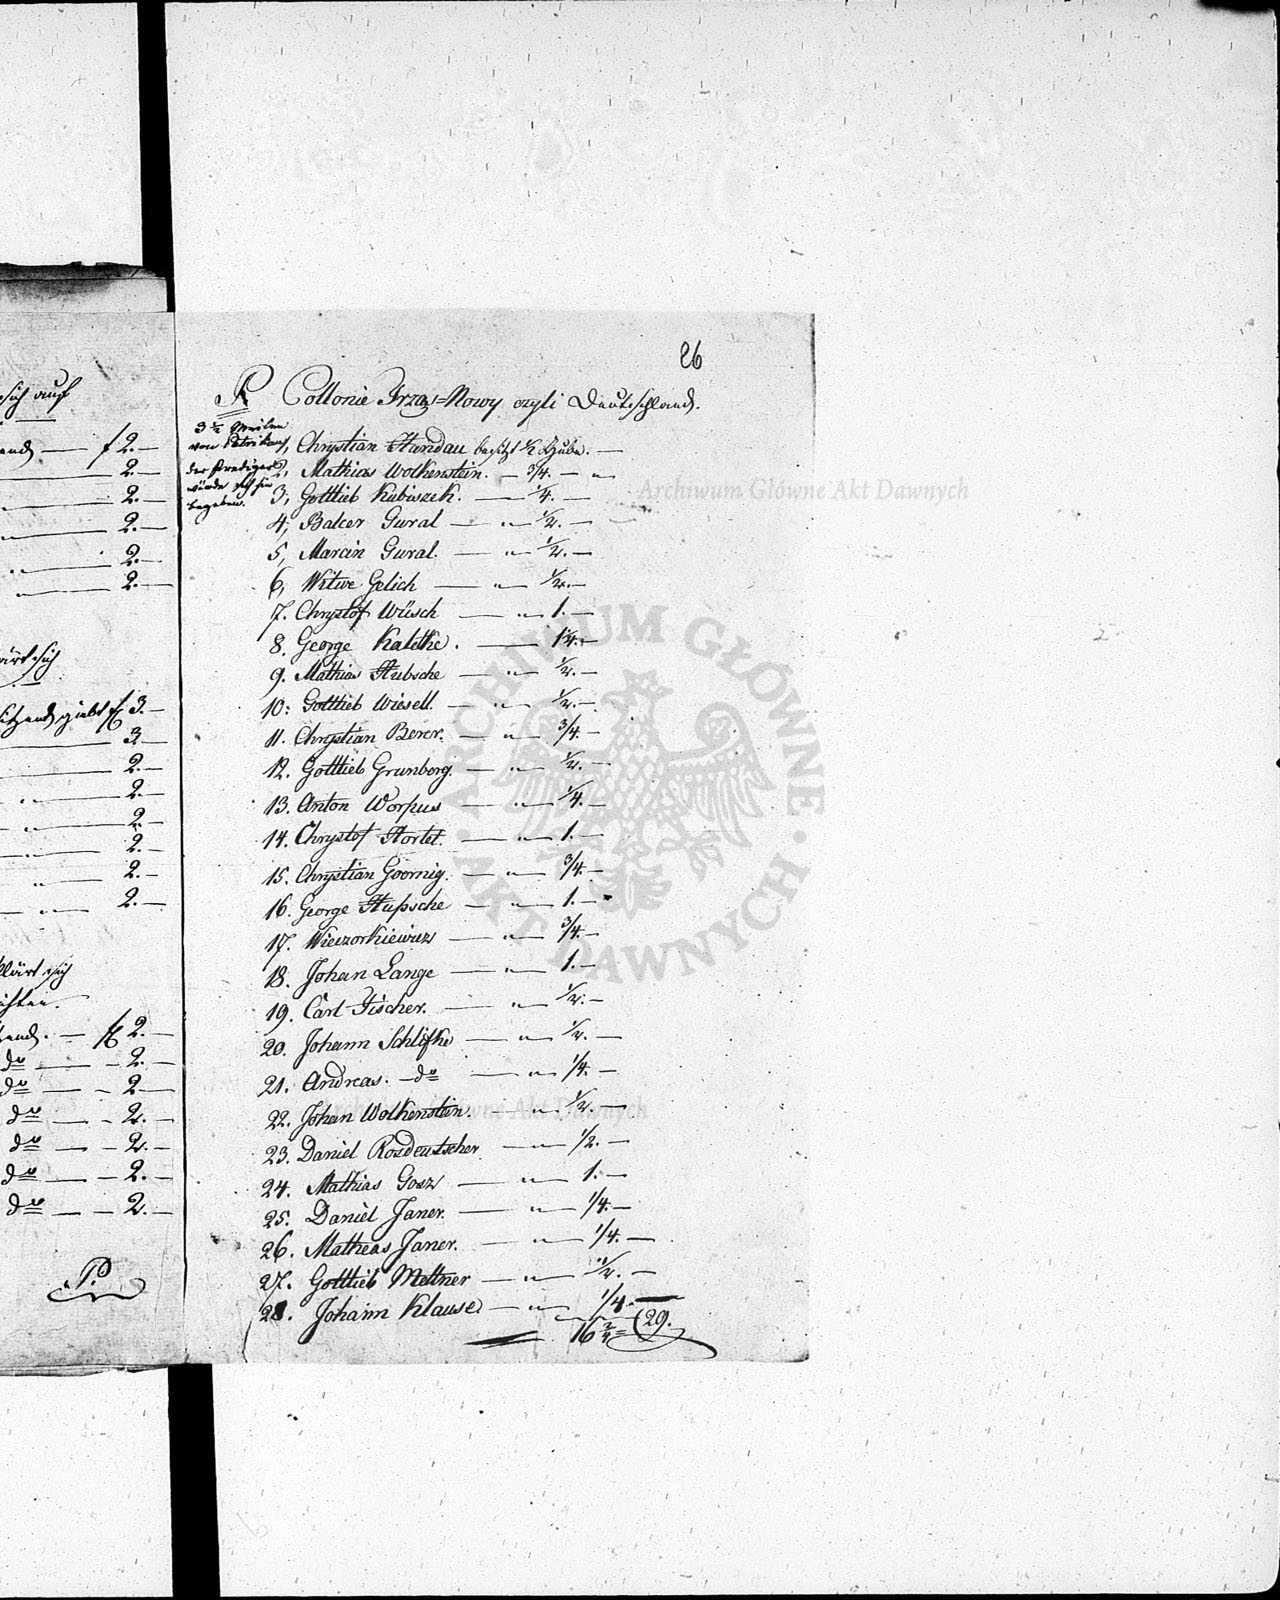 sich auf
f 2.—
2.—
2.—
2.—
2.—
2.—
sich
giebt f 3.—
3.—
2.—
2.—
2.—
2.—
2.—
2.—
sich
f 2.—
do — 2.—
do — 2.—
do — 2.—
do — 2.—
do — 2.—
do — 2.—
P.
26
Collonie Nowy czyli Deutschland.
3 ½ Meilen
von Petrikau
der Prediger
würde sich hin
begeben.
1, Chrystian Handau besitzt ½ Hube. —
2, Mathias Wolkenstein. — 3/4. — "
3, Gottlieb Kubiszek. — 1/4. —
4, Balcer Gural — " — 1/2. —
5, Marcin Gural. — " — 1/2. —
6, Witwe Gelich — " — 1/2. —
7. Chrystof Wüsch — " — 1. —
8. George Kaletke. — 1 1/4. —
9. Mathias Hubsche — " — 1/2. —
10: Gottlieb Wiesell. — " — 1/2. —
11. Chrystian Berer. — " — 3/4. —
12. Gottlieb Grunberg. — " — 1/2. —
13. Anton Worpus — " — 1/4. —
14. Chrystof Hortet. — " — 1. —
15. Chrystian Goornig. — " — 3/4. —
16. George Hupsche — " — 1. —
17. Wieczorkiewicz — " — 3/4. —
18. Johan Lange — " — 1. —
19. Carl Fischer. — " — 1/2. —
20. Johann Schlifke — " — 1/2. —
21. Andreas. — do — " — 1/4. —
22. Johan Wolkenstein. — " — 1/2. —
23. Daniel Rosdeutscher — " — 1/2. —
24. Mathias Gosz — " — 1. —
25. Daniel Janer. — " — 1/4. —
26. Matheas Janer. — " — 1/4. —
27. Gottlieb Mettner — " — 1/2. —
28. Johann Klause — " — 1/4. —
16 2/4 = 29.
Archiwum Główne Akt Dawnych
ARCHIWUM GŁÓWNE · AKT DAWNYCH ·
Archiwum Główne Akt Dawnych